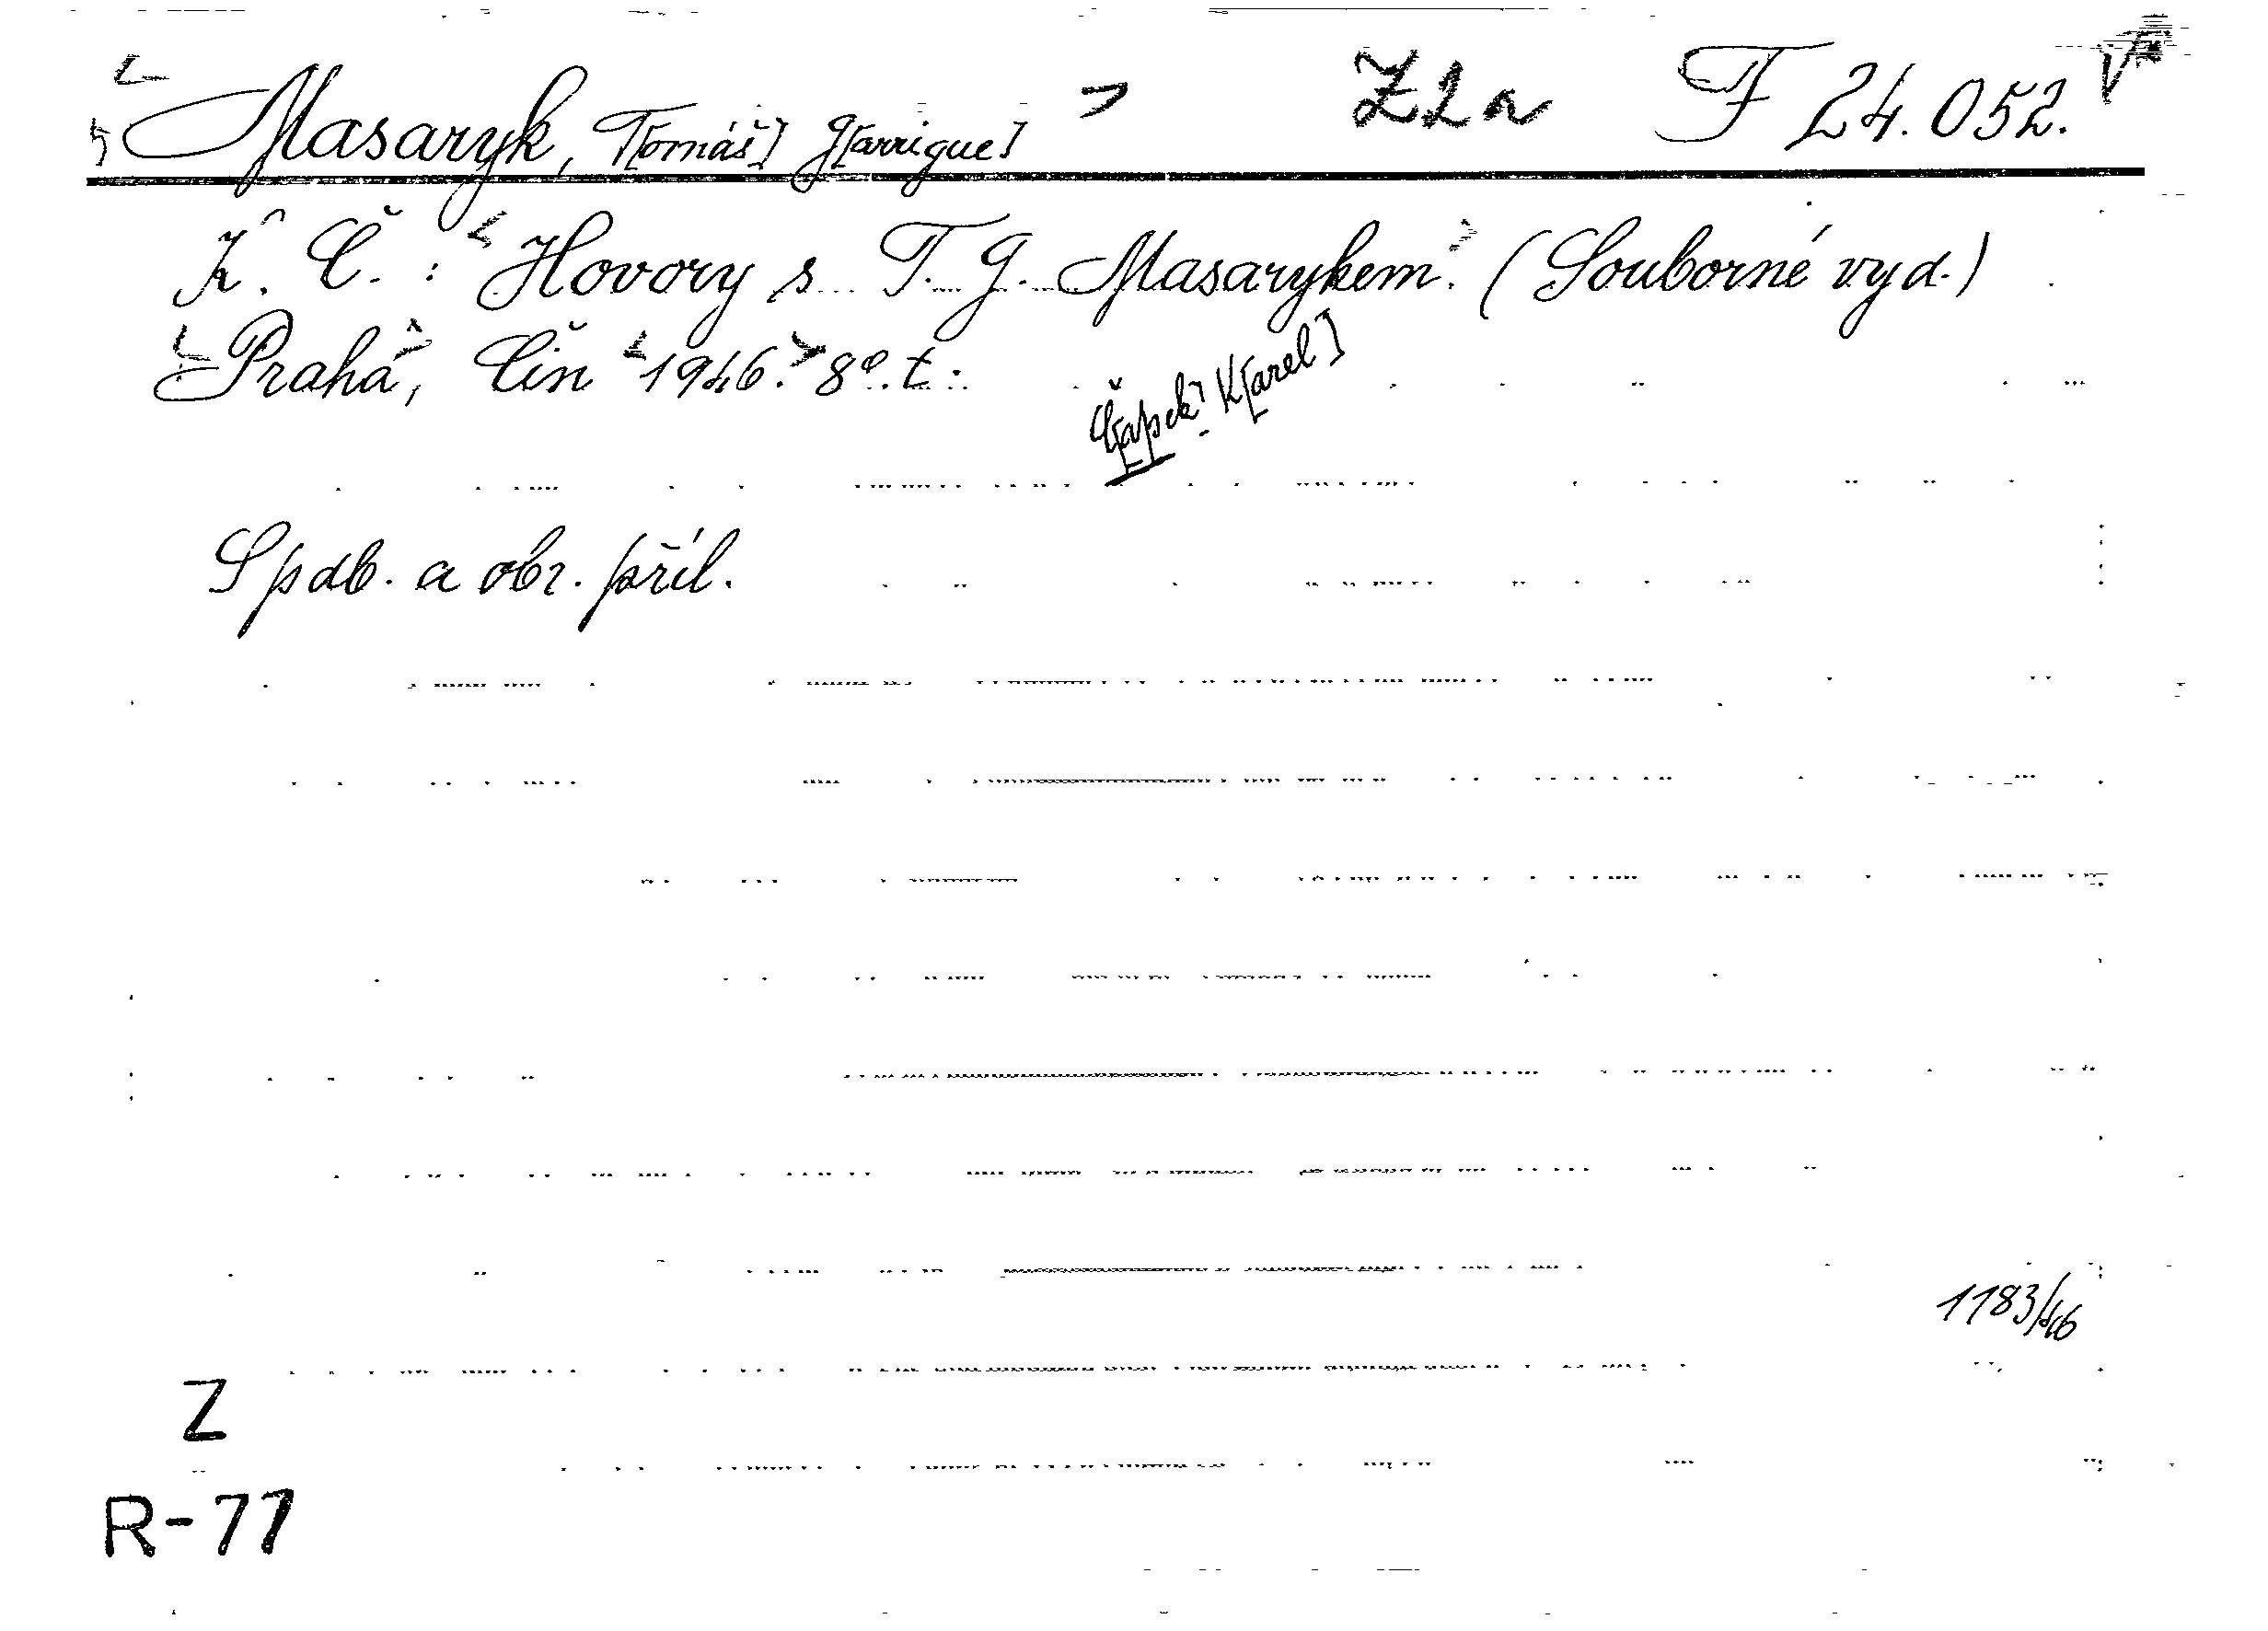 Masaryk, T[omáš] G[arrigue] Z2a F 24.052.
K. Č.: Hovory s T. G. Masarykem. (Souborné vyd.)
Praha, Čin 1946. 8°. t.
Č[apek] K[arel]
S pdb. a obr. příl.
1183/46
Z
R-77